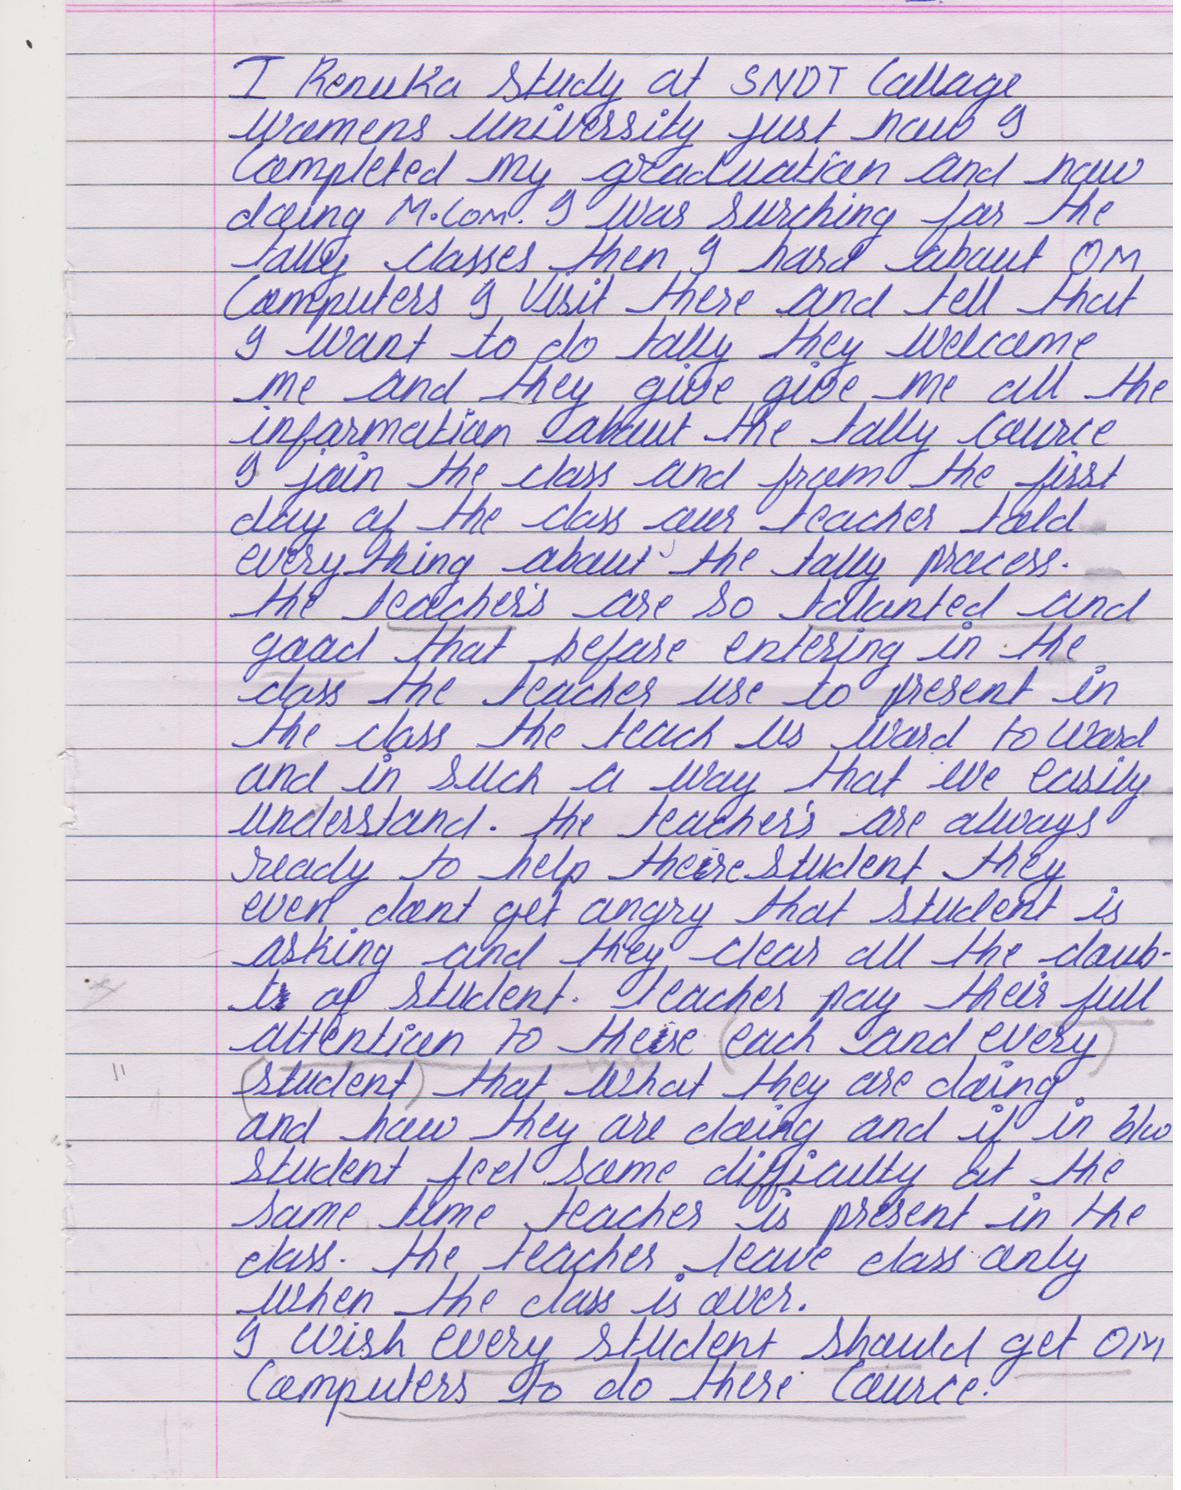 I Renuka study at SNDT Collage
womens university just now I
Completed my graduation and now
doing M.Com. I was surching for the
tally classes then I hard about OM
Computers I visit there and tell that
I want to do tally they welcome
me and they give give me all the
information about the tally Cource
I join the class and from the first
day of the class our teacher told
everything about the tally process.
the teacher's are so talanted and
good that before entering in the
class the teacher use to present in
the class the teach us word to word
and in such a way that we easily
understand. the teacher's are always
ready to help theire student they
even dont get angry that student is
asking and they clear all the doub-
ts of student. teacher pay their full
attention to theire (each and every
student) that what they are doing
and how they are doing and if in b/w
student feel some difficulty at the
same time teacher is present in the
class. the teacher leave class only
when the class is over.
I wish every student should get OM
Computers to do there Cource.